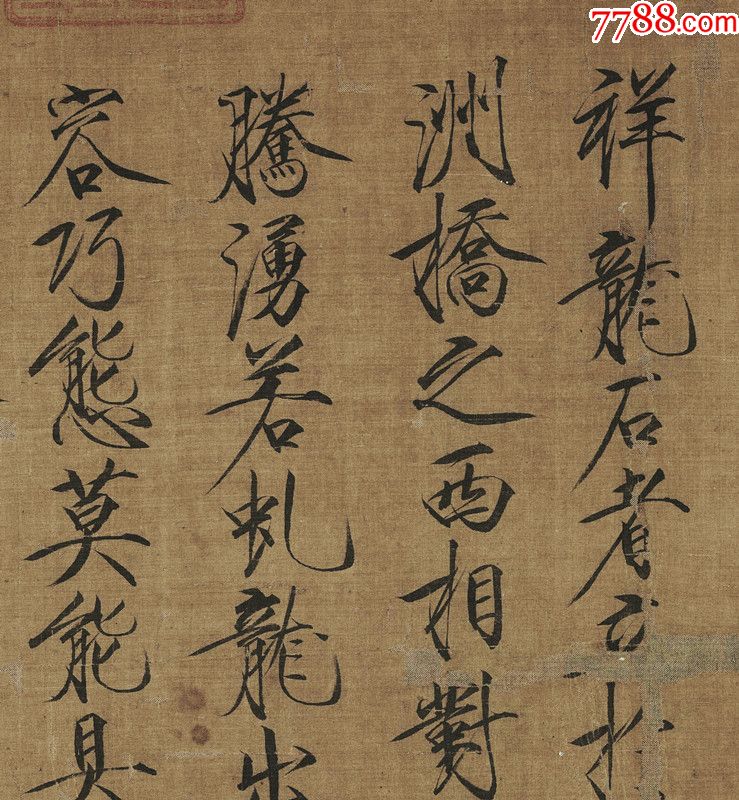 7788.com
祥龍石者立於
洲橋之西相對
騰湧若虬龍出
容巧態莫能具